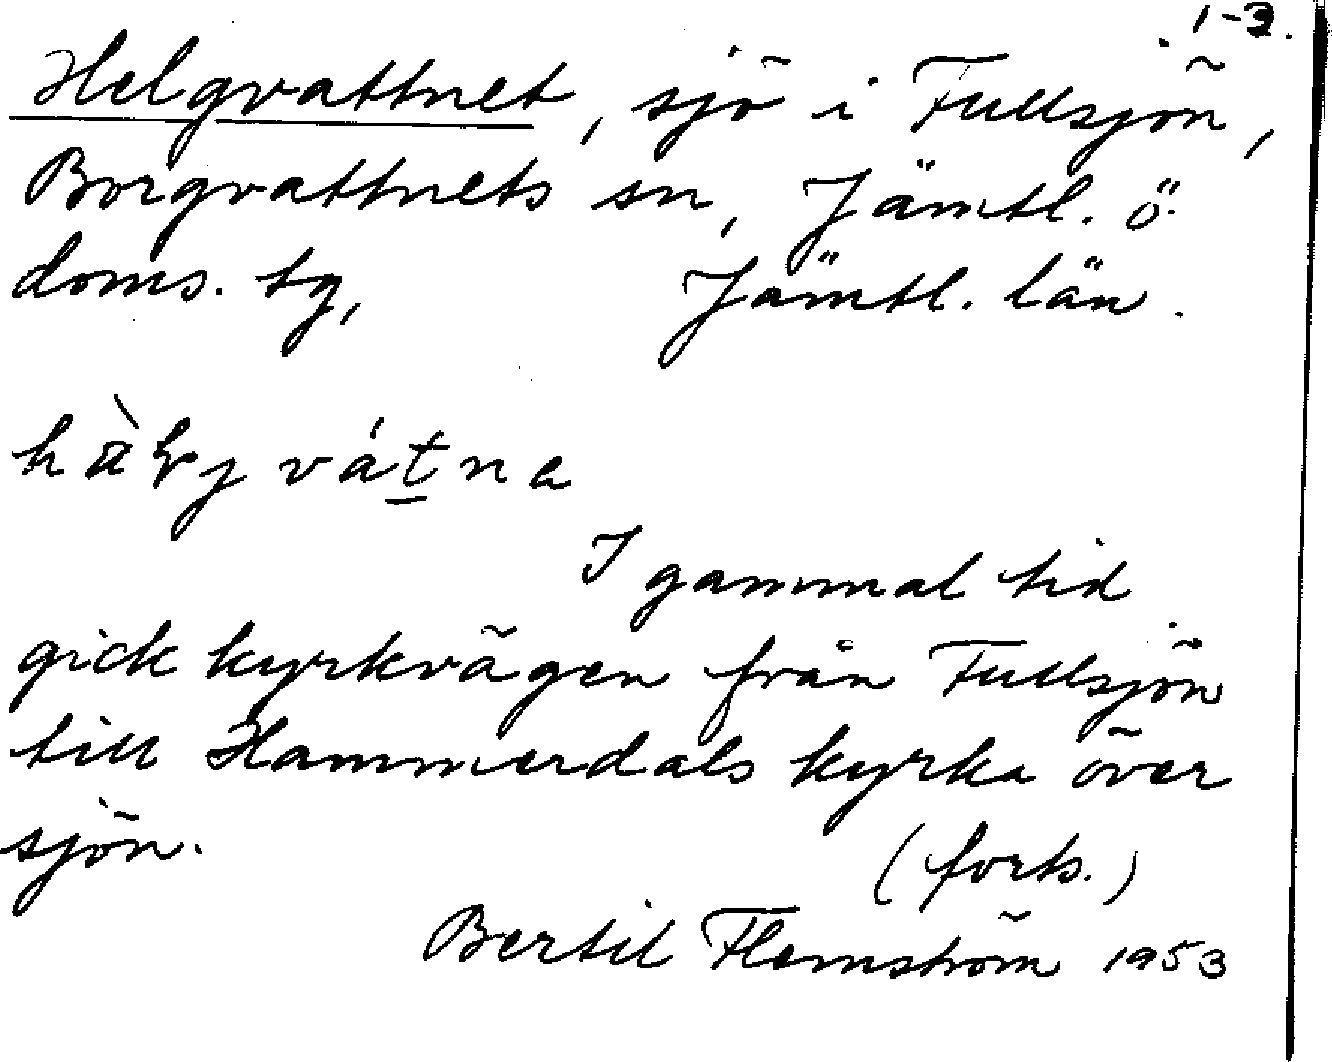 1-3.
Helgvattnet, sjö i Fullsjön,
Borgvattnets sn, Jämtl. ö.
doms. tg, Jämtl. län.
vátna
I gammal tid
gick kyrkvägen från Fullsjön
till Hammerdals kyrka över
sjön.
(forts.)
Bertil Flemström 1953